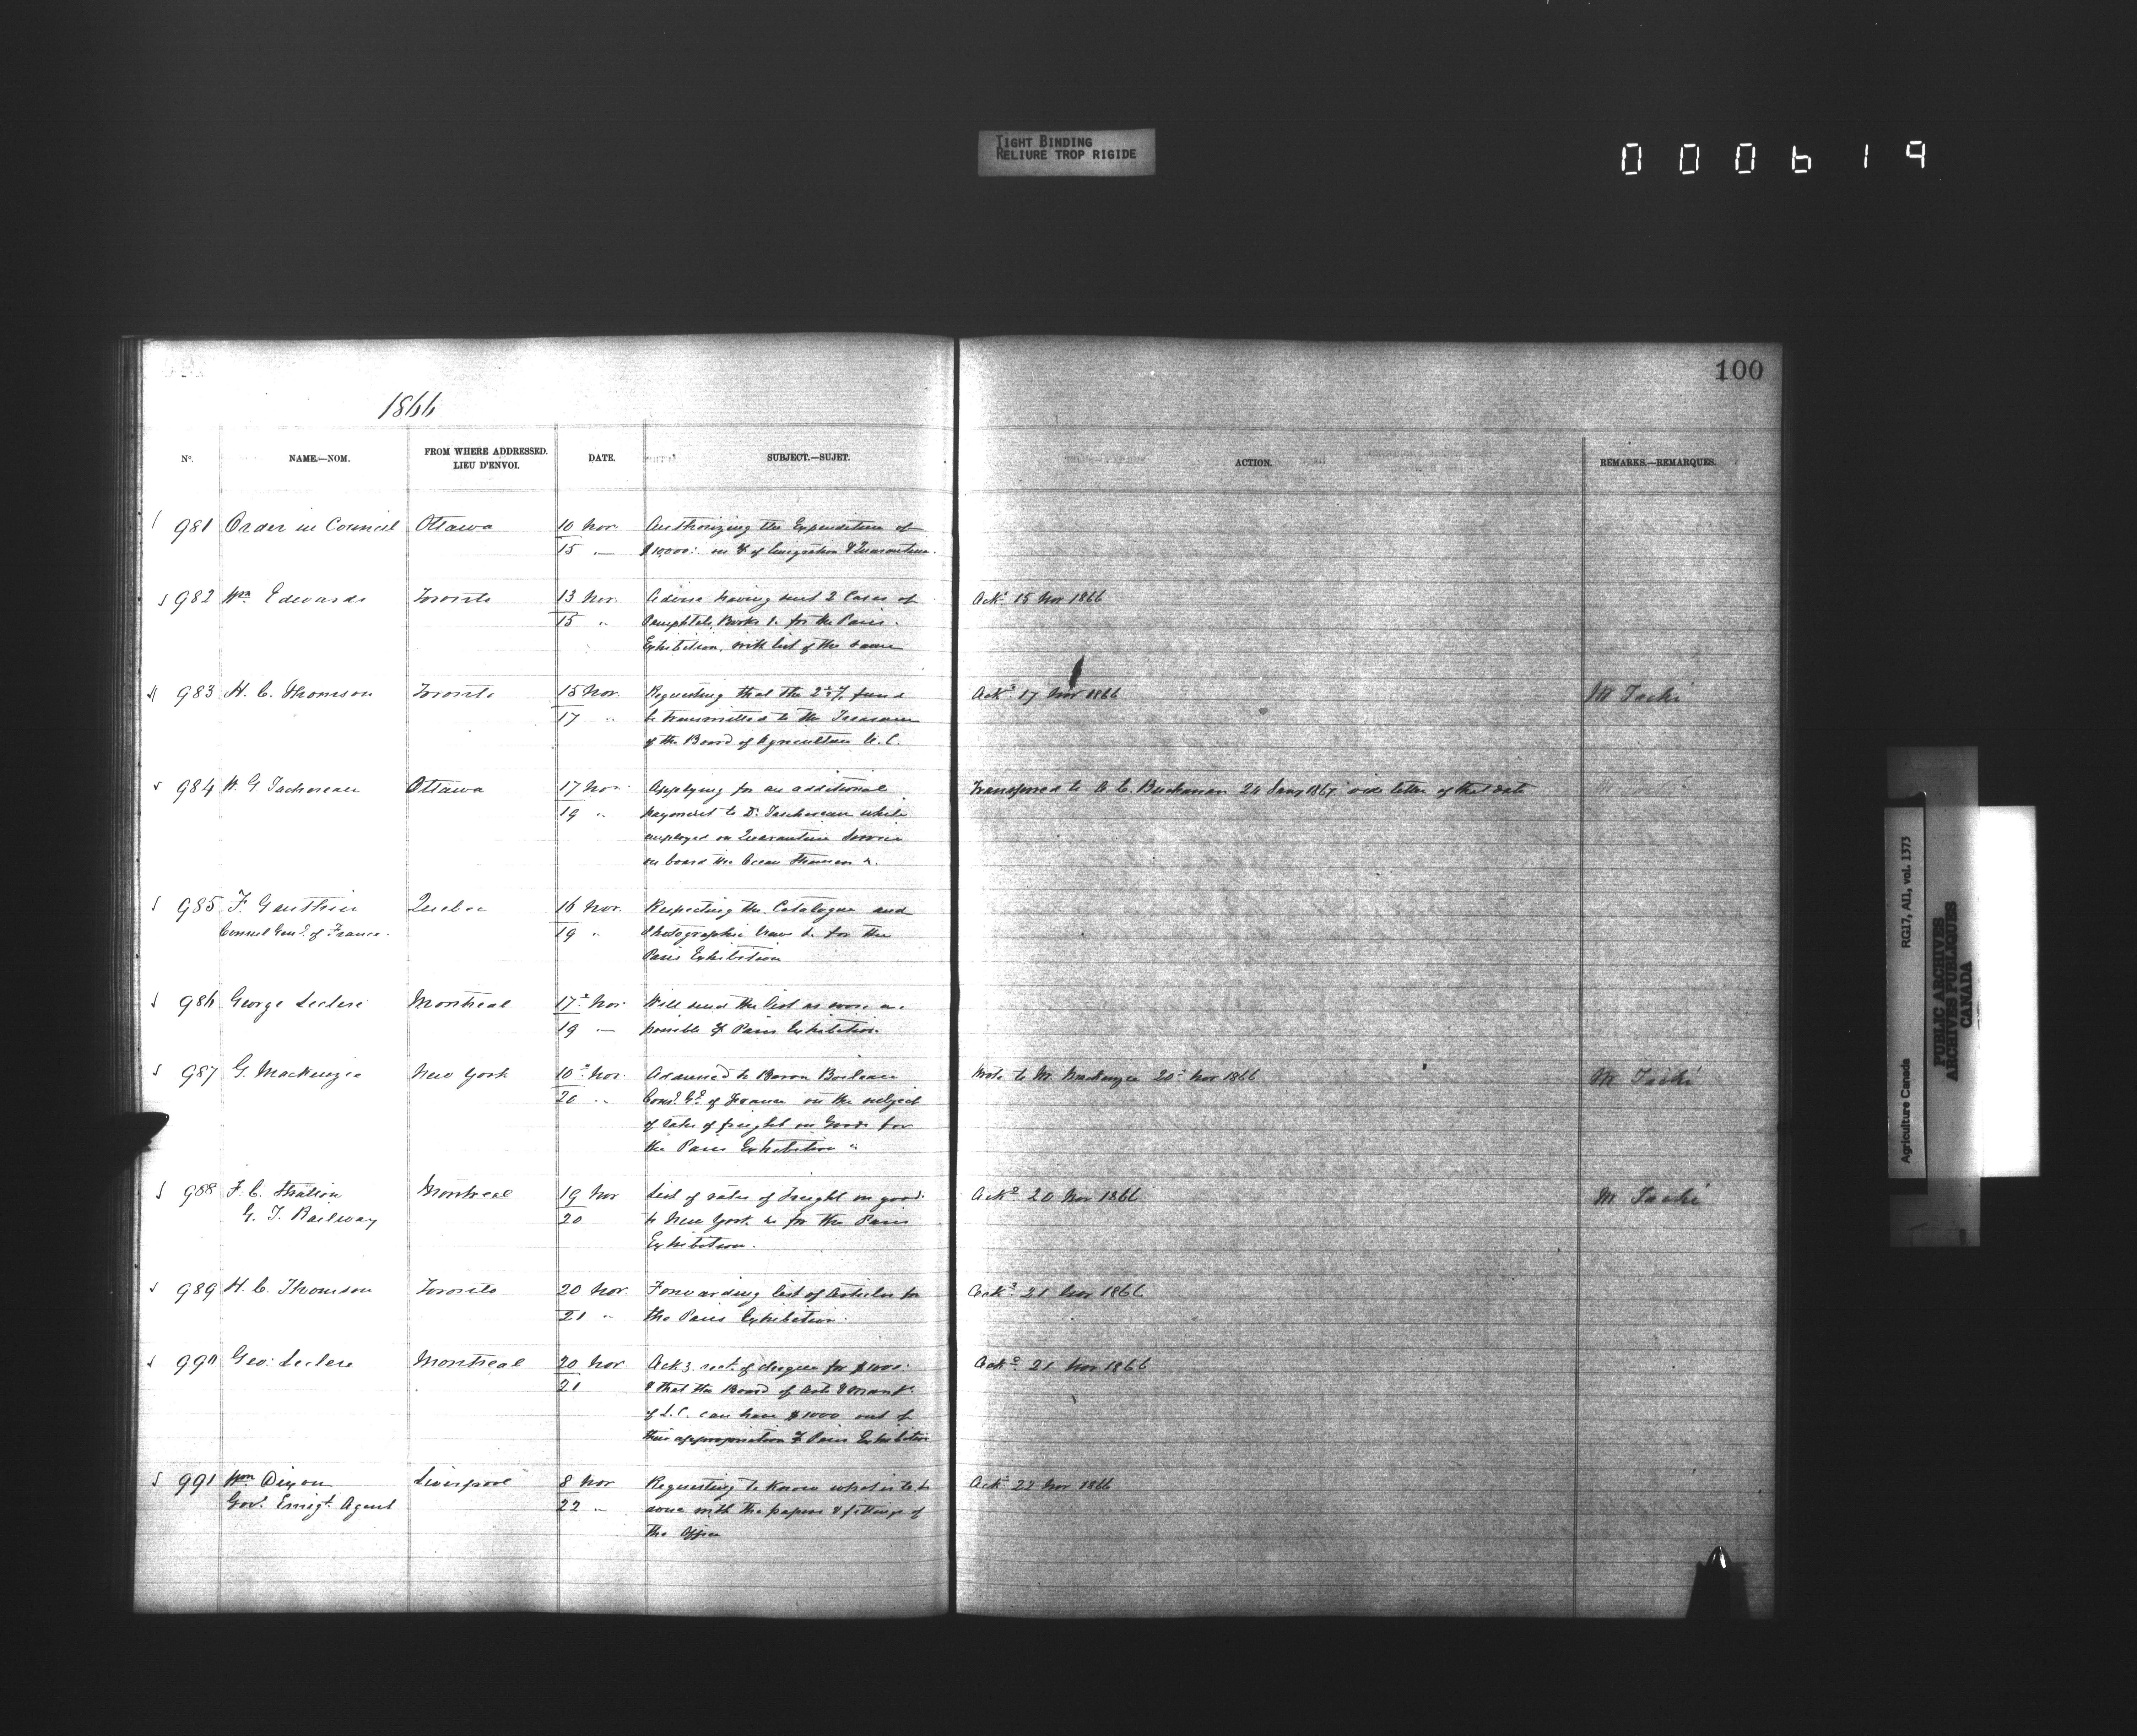 TIGHT BINDING
RELIURE TROP RIGIDE
000619
100
1866
No. NAME.—NOM. FROM WHERE ADDRESSED. LIEU D'ENVOI. DATE. SUBJECT.—SUJET. ACTION. REMARKS.—REMARQUES.
981 Order in Council Ottawa 10 Nov. Authorizing the Expenditure of
15 $10,000: on % of Emigration & Quarantine.
982 Wm Edwards Toronto 13 Nov. Advise having sent 2 Cases of Ackd 15 Nov 1866
15 " Pamphlets, Books &c for the Paris
Exhibition, with list of the same
983 H. C. Thomson Toronto 15 Nov. Requesting that the fund Ackd 17 Nov 1866 Mr Taché
17 " be transmitted to the Treasurer
of the Board of Agriculture U. C.
984 H. G Taschereau Ottawa 17 Nov. Applying for an additional Transferred to A C. Buchanan 24 Jany 1867 vide letter of that date
19 " payment to Dr Taschereau while
employed on Quarantine Service
on board the Ocean Steamers &c.
985 F. Gauthier Quebec 16 Nov. Respecting the Catalogue and
Consul Genl. of France. 19 " Photographic Views &c for the
Paris Exhibition
986 George Leclere Montreal 17 Nov Will send the list as soon as
19 possible Paris Exhibition
987 G. Mackenzie New York 10 Nov. Addressed to Baron Boileau Wrote to Mr Mackenzie 20 Nov 1866 Mr Taché
20 " Consl. Gl. of France on the subject
of rates of freight on Goods for
the Paris Exhibition
988 F. C. Stratton Montreal 19 Nov List of rates of Freight on goods Ackd 20 Nov 1866 Mr Taché
G. T. Railway 20 to New York &c for the Paris
Exhibition.
989 H. C. Thomson Toronto 20 Nov. Forwarding list of Articles for Ackd 21 Nov 1866
21 " the Paris Exhibition.
990 Geo: Leclere Montreal 20 Nov. Ackg rect. of cheque for $1000: Ackd 21 Nov 1866
21 & that the Board of Arts & Manfs.
of L.C. can have $1000 out of
their appropriation Paris Exhibition
991 Wm Dixon Liverpool 8 Nov Requesting to know what is to be Ackd 22 Nov 1866
Gov. Emigt. Agent 22 " done with the papers & fittings of
the Office
Agriculture Canada RG17, AII, vol. 1373
PUBLIC ARCHIVES
ARCHIVES PUBLIQUES
CANADA